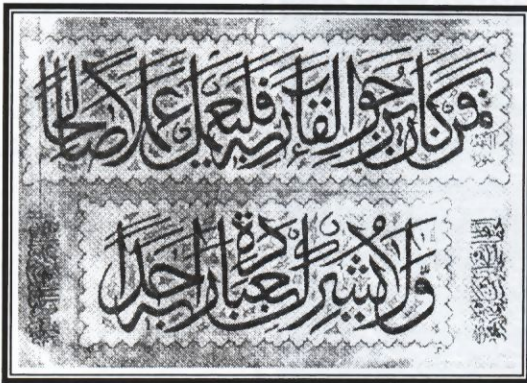 فمن كان يرجوا لقاء ربه فليعمل عملا صالحا
ولا يشرك بعبادة ربه أحدا